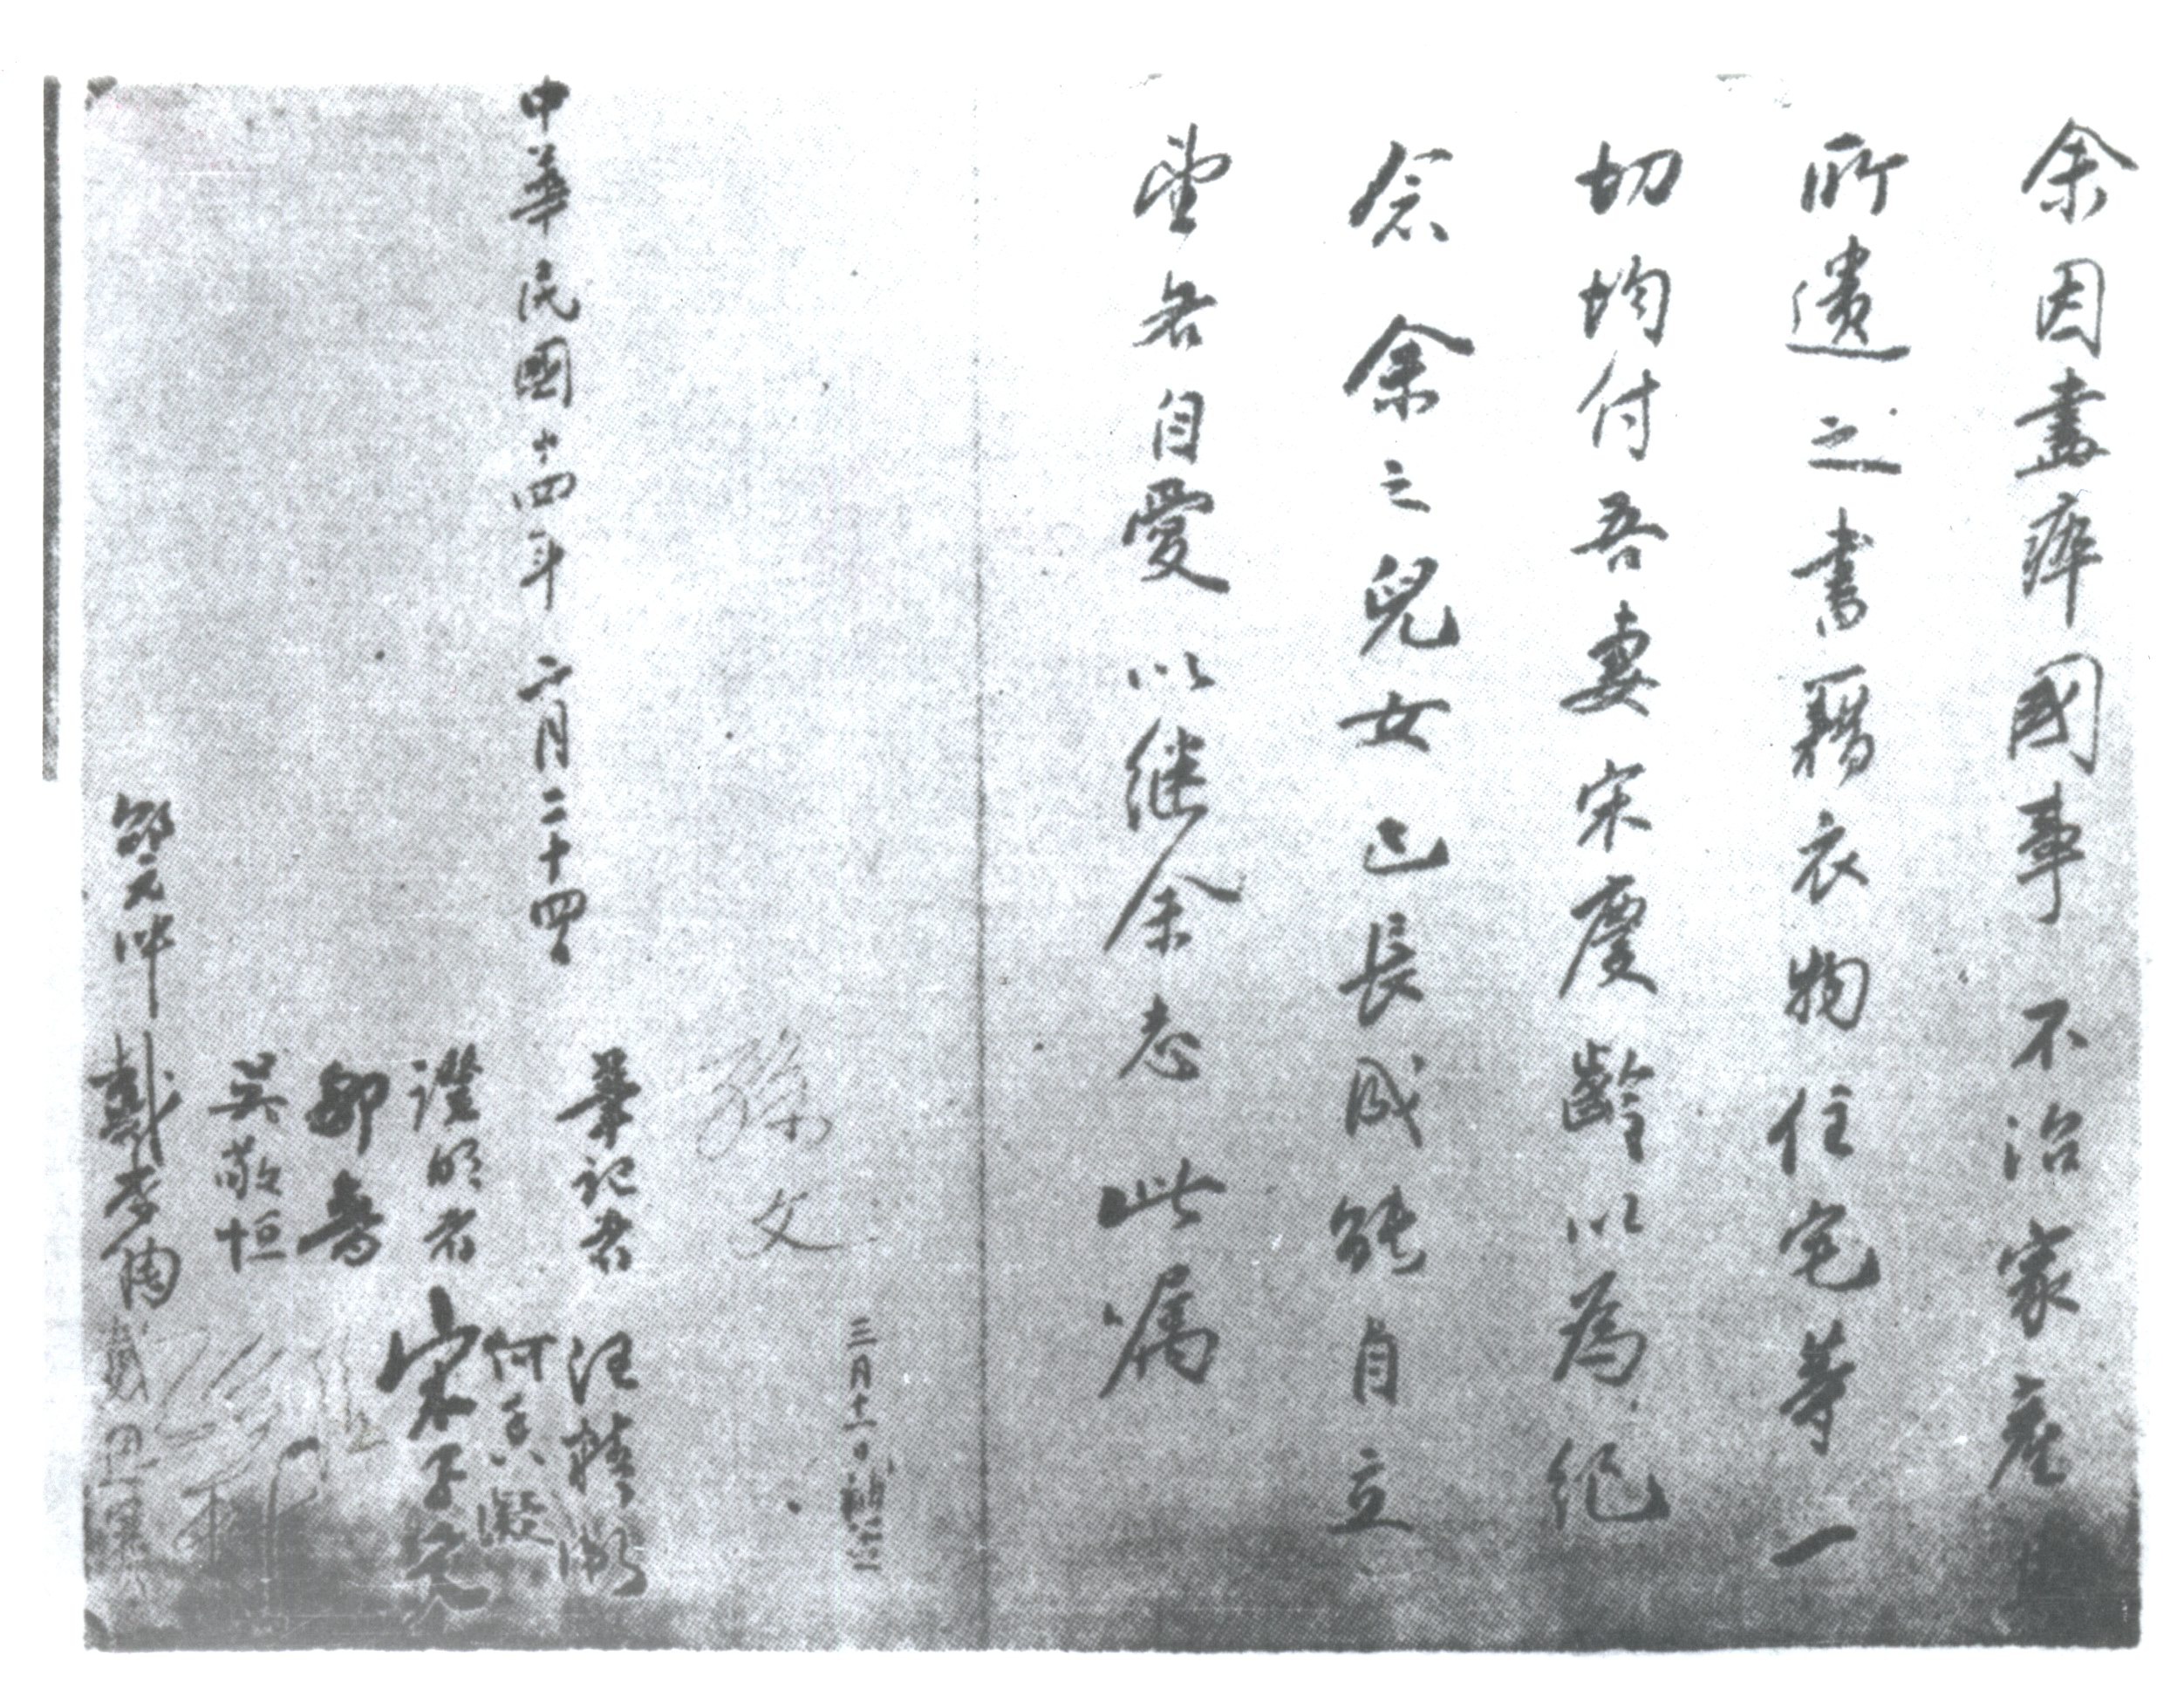 余因盡瘁國事不治家產
所遺之書籍衣物住宅等一
切均付吾妻宋慶齡以為紀
念余之兒女已長成能自立
望各自愛以繼余志此囑
三月十一日補簽
孫文
中華民國十四年二月二十四
筆記者 汪精衛
何香凝
證明者 宋子文
鄒魯
吳敬恒
邵元沖 戴季陶
戴恩賽